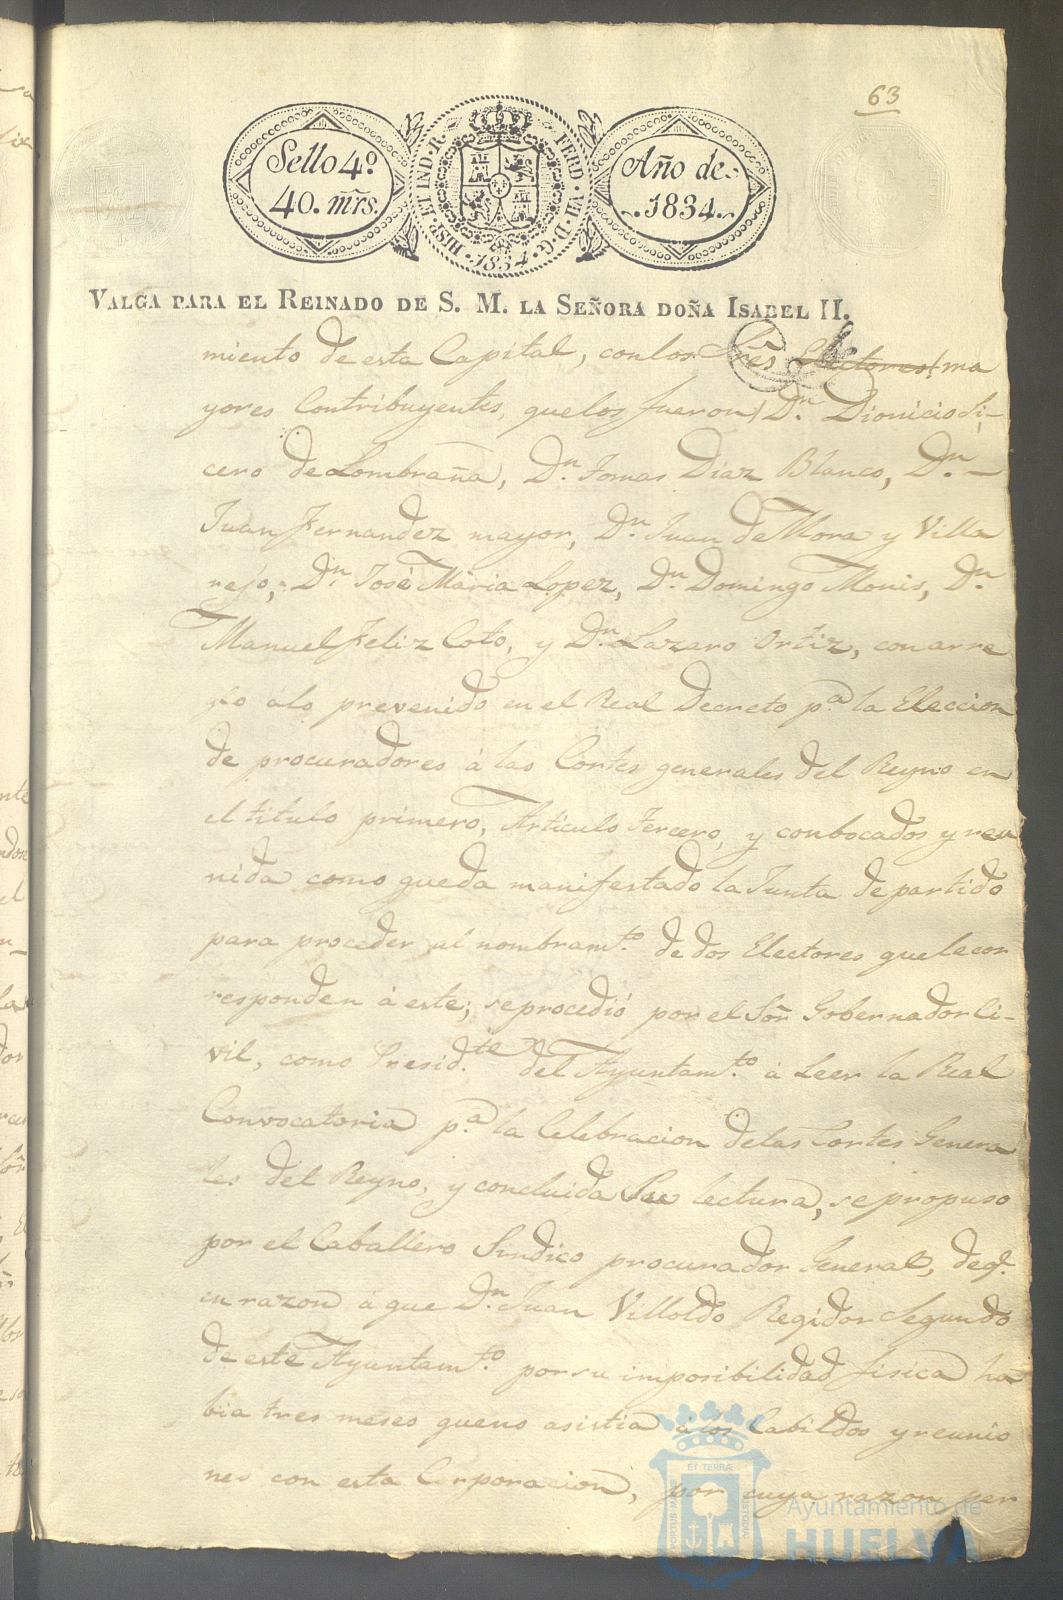 63
Sello 4º
40. mrs.
HISP. ET IND. R. FERD. VII. D. G. 1834.
Año de
1834.
VALGA PARA EL REINADO DE S. M. LA SEÑORA DOÑA ISABEL II.
miento de esta Capital, con los Sres Electores ma
yores Contribuyentes, que los fueron Dn. Dionicio Si-
cero de Lombraña, Dn. Tomas Diaz Blanco, Dn.
Juan Fernandez mayor, Dn. Juan de Mora y Villa
rejo, Dn. José Maria Lopez, Dn. Domingo Monis, Dn.
Manuel Feliz Coto, y Dn. Lazaro Ortiz, con arre
glo álo prevenido en el Real Decreto pa. la Eleccion
de procuradores á las Cortes generales del Reyno en
el titulo primero, Articulo tercero, y conbocados y reu
nida como queda manifestado la Junta de partido
para proceder al nombramto. de dos Electores que le cor
responden á este; se procedió por el Sor. Gobernador Ci-
vil, como Presidte. del Ayuntamto. á Leer la Real
Convocatoria pa. la Celebracion de las Cortes Genera
les del Reyno, y concluida su lectura, se propuso
por el Caballero Sindico procurador General, de q.
en razon á que Dn. Juan Villoldo Regidor Segundo
de este Ayuntamto. por su imposibilidad fisica ha
bia tres meses que no asistia á los Cabildos y reunio
nes con esta Corporacion, por cuya razon per
Ayuntamiento de
HUELVA